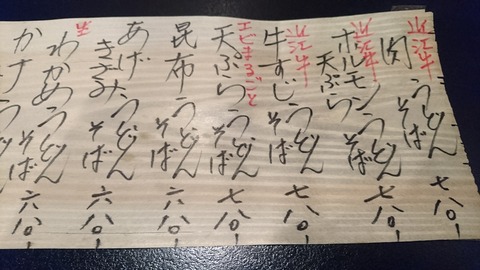 近江牛
肉うどん 七八〇ー
近江牛
ホルモン
天ぷら
うどん
そば
七八〇ー
近江牛
牛すじ
うどん
そば
七八〇ー
エビまるごと
天ぷら
うどん
そば
七八〇ー
昆布
うどん
そば
六八〇ー
あげ
きざみ
うどん
そば
六八〇ー
生
わかめ
うどん
そば
六八〇ー
かす
うどん
そば
六八〇ー